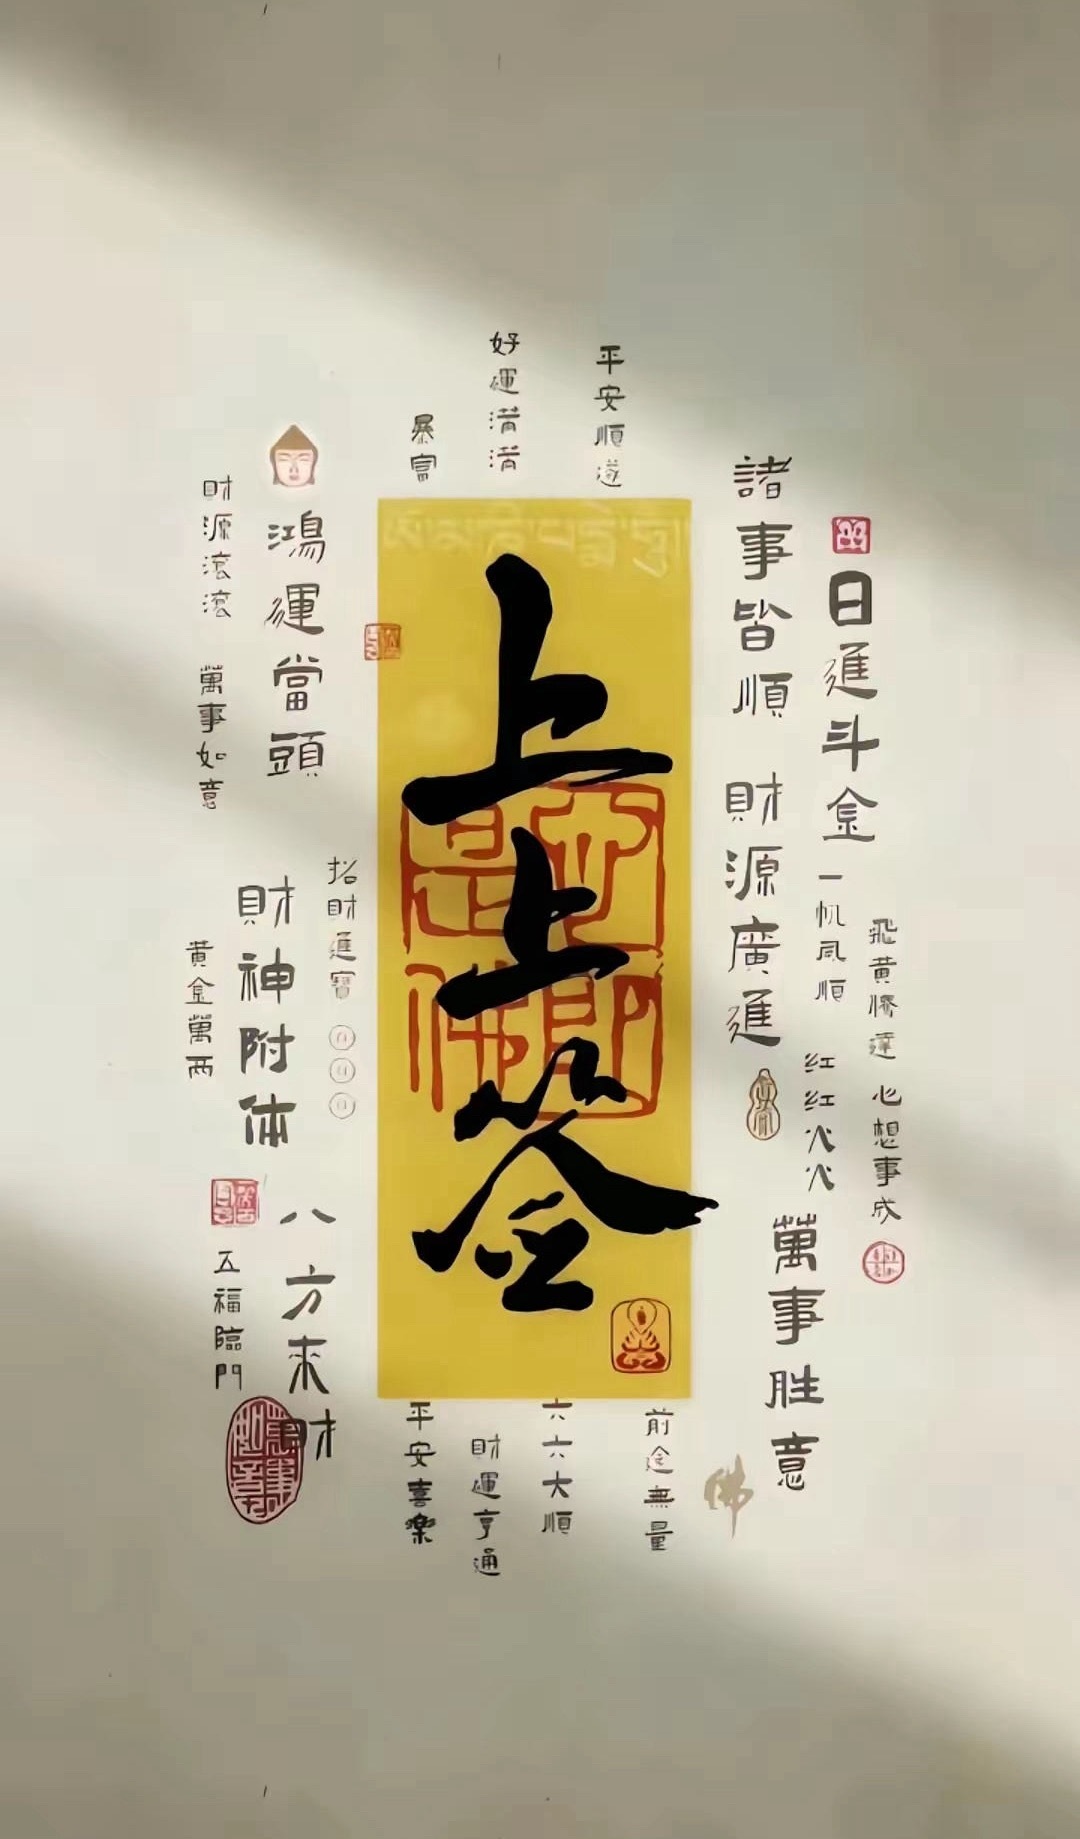 上上签
好運潸潸
平安順遂
暴富
諸事皆順
財源廣進
日進斗金
一帆風順
紅紅火火
飛黃騰達
心想事成
萬事胜意
鴻運當頭
財源滾滾
萬事如意
招財進寶
財神附体
黃金萬两
八方来財
五福臨門
平安喜樂
財運亨通
六六大順
前途無量
佛